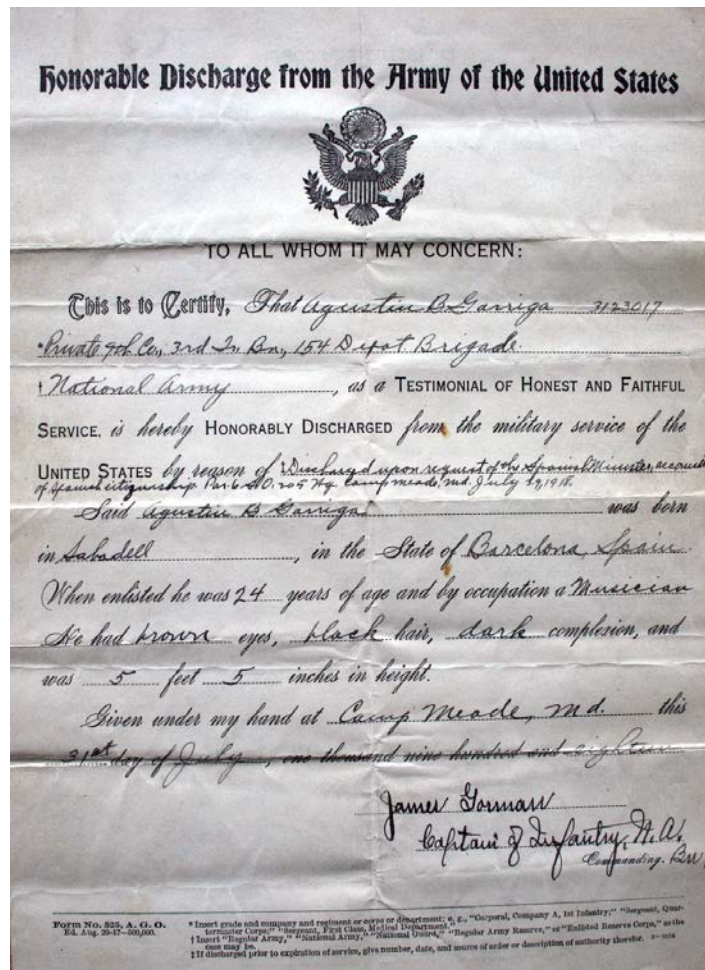 Honorable Discharge from the Army of the United States
TO ALL WHOM IT MAY CONCERN:
This is to Certify, That Agustin B Garriga 3123017
*Private 9th Co., 3rd In Bn., 154 Depot Brigade
†National Army, as a TESTIMONIAL OF HONEST AND FAITHFUL
SERVICE, is hereby HONORABLY DISCHARGED from the military service of the
UNITED STATES by reason of ‡Discharged upon request of the Spanish Minister, account
of Spanish citizenship. Par 6 S.O. 205 Hq. Camp Meade, Md. July 19, 1918.
Said Agustin B Garriga was born
in Sabadell, in the State of Barcelona, Spain
When enlisted he was 24 years of age and by occupation a Musician
He had brown eyes, black hair, dark complexion, and
was 5 feet 5 inches in height.
Given under my hand at Camp Meade, Md. this
31st day of July, one thousand nine hundred and eighteen
James Gorman
Captain of Infantry, N.A.
Commanding.
Form No. 525, A. G. O.
Ed. Aug. 20-17—500,000.
*Insert grade and company and regiment or corps or department; e. g., "Corporal, Company A, 1st Infantry;" "Sergeant, Quar-
termaster Corps;" "Sergeant, First Class, Medical Department."
†Insert "Regular Army," "National Army," "National Guard," "Regular Army Reserve," or "Enlisted Reserve Corps," as the
case may be.
‡If discharged prior to expiration of service, give number, date, and source of order or description of authority therefor.